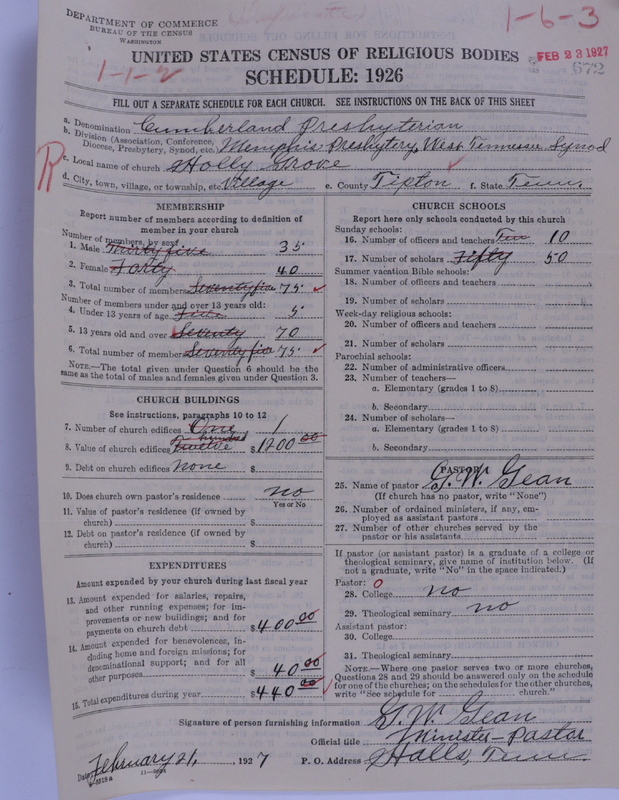 DEPARTMENT OF COMMERCE
BUREAU OF THE CENSUS
WASHINGTON
1-6-3
UNITED STATES CENSUS OF RELIGIOUS BODIES
FEB 23 1927
672
1-1-2
SCHEDULE: 1926
FILL OUT A SEPARATE SCHEDULE FOR EACH CHURCH. SEE INSTRUCTIONS ON THE BACK OF THIS SHEET
a. Denomination Cumberland Presbyterian
b. Division (Association, Conference, Diocese, Presbytery, Synod, etc.) Memphis Presbytery, West Tennessee Synod
R
c. Local name of church Holly Grove
d. City, town, village, or township, etc. Village e. County Tipton f. State Tenn.
MEMBERSHIP
Report number of members according to definition of
member in your church
Number of members, by sex:
1. Male Thirty five 35
2. Female Forty 40
3. Total number of members Seventy five 75
Number of members under and over 13 years old:
4. Under 13 years of age Five 5
5. 13 years old and over Seventy 70
6. Total number of members Seventy five 75
NOTE.—The total given under Question 6 should be the
same as the total of males and females given under Question 3.
CHURCH BUILDINGS
See instructions, paragraphs 10 to 12
7. Number of church edifices One 1
8. Value of church edifices Twelve hundred $1200 00
9. Debt on church edifices None $
10. Does church own pastor's residence no
Yes or No
11. Value of pastor's residence (if owned by
church) $
12. Debt on pastor's residence (if owned by
church) $
EXPENDITURES
Amount expended by your church during last fiscal year
13. Amount expended for salaries, repairs,
and other running expenses; for im-
provements or new buildings; and for
payments on church debt $400 00
14. Amount expended for benevolences, in-
cluding home and foreign missions; for
denominational support; and for all
other purposes $ 40 00
15. Total expenditures during year $440 00
CHURCH SCHOOLS
Report here only schools conducted by this church
Sunday schools:
16. Number of officers and teachers Ten 10
17. Number of scholars Fifty 50
Summer vacation Bible schools:
18. Number of officers and teachers
19. Number of scholars
Week-day religious schools:
20. Number of officers and teachers
21. Number of scholars
Parochial schools:
22. Number of administrative officers
23. Number of teachers—
a. Elementary (grades 1 to 8)
b. Secondary
24. Number of scholars—
a. Elementary (grades 1 to 8)
b. Secondary
PASTOR
25. Name of pastor G. W. Gean
(If church has no pastor, write "None")
26. Number of ordained ministers, if any, em-
ployed as assistant pastors
27. Number of other churches served by the
pastor or his assistants
If pastor (or assistant pastor) is a graduate of a college or
theological seminary, give name of institution below. (If
not a graduate, write "No" in the space indicated.)
Pastor: 0
28. College no
29. Theological seminary no
Assistant pastor:
30. College
31. Theological seminary
NOTE.—Where one pastor serves two or more churches,
Questions 28 and 29 should be answered only on the schedule
for one of the churches; on the schedules for the other churches,
write "See schedule for church."
Signature of person furnishing information G. W. Gean
Official title Minister-Pastor
Date February 21, 1927 P. O. Address Halls, Tenn.